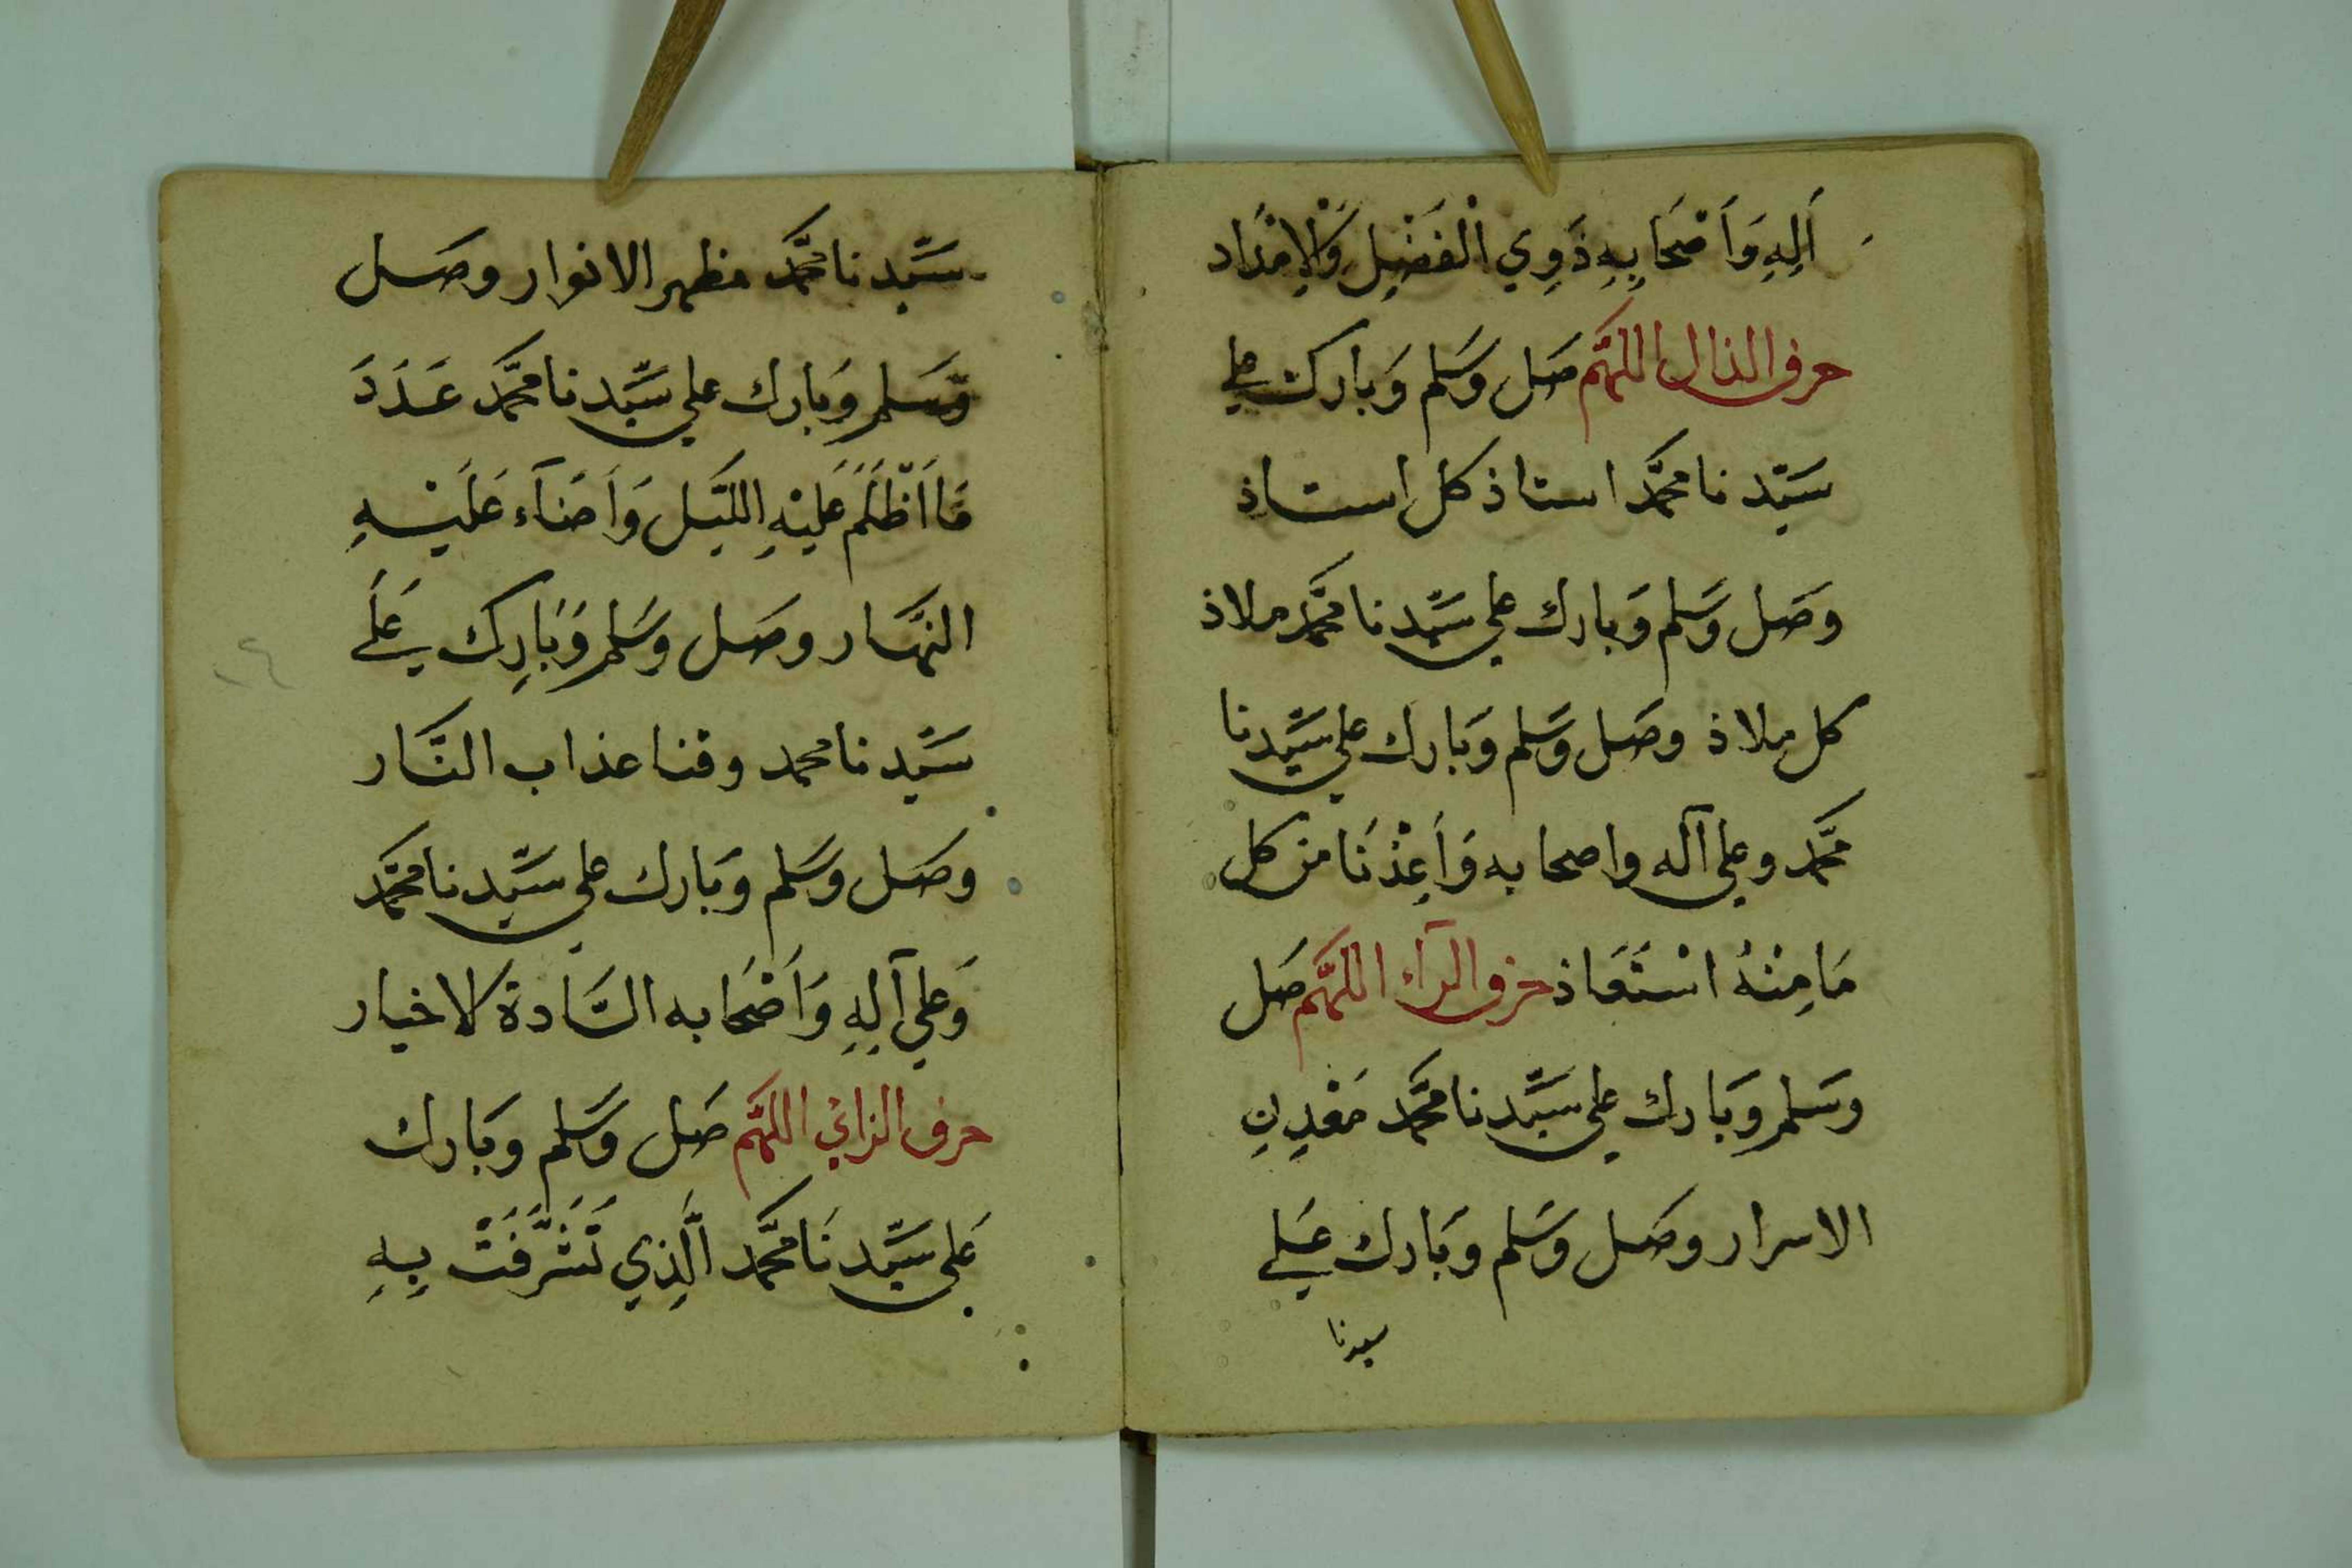 آلِهِ وَاَصْحَابِهِ ذَوِي الْفَضْلِ وَالْاِمْدَاد
حرف الذال اللهُمَّ صَل وَسَلم وَبارك على
سَيِّدنا محمَّد استاذ كل استاذِ
وَصَل وَسَلم وَبارك على سَيِّدنا محمَّد ملاذ
كل ملاذ وصَل وَسَلم وَبَارك على سَيِّدنا
محمَّد وعلى آله واصحابه وَاَعِذْنَا من كل
مَا مِنْهُ اسْتَعَاذ حرف الرآء اللهُمَّ صَل
وسَلم وبَارك على سَيِّدنا محمَّد مَعْدِنِ
الاسرار وصَل وسَلم وبَارك عَلى
سيدنا
سَيِّدنا محمَّد مظهر الانوار وصَل
وَسَلم وَبَارك على سَيِّدنا محمَّد عَدَدَ
مَا اَظْلَمَ عَلَيْهِ اللَّيْل وَاَضَآء عَلَيْهِ
النهَار وصَل وسَلم وَبَارِك عَلَى
سَيِّدنا محمد وقنا عذاب النَّار
وصَل وسَلم وبَارك على سَيِّدنا محمَّد
وَعلى آلِهِ وَاَصْحَابه السَّادة الاخيار
حرف الزاي اللهُمَّ صَل وَسَلم وبَارك
عَلى سَيِّدنَا محمَّد الَّذِي تَشَرَّفَتْ بِهِ